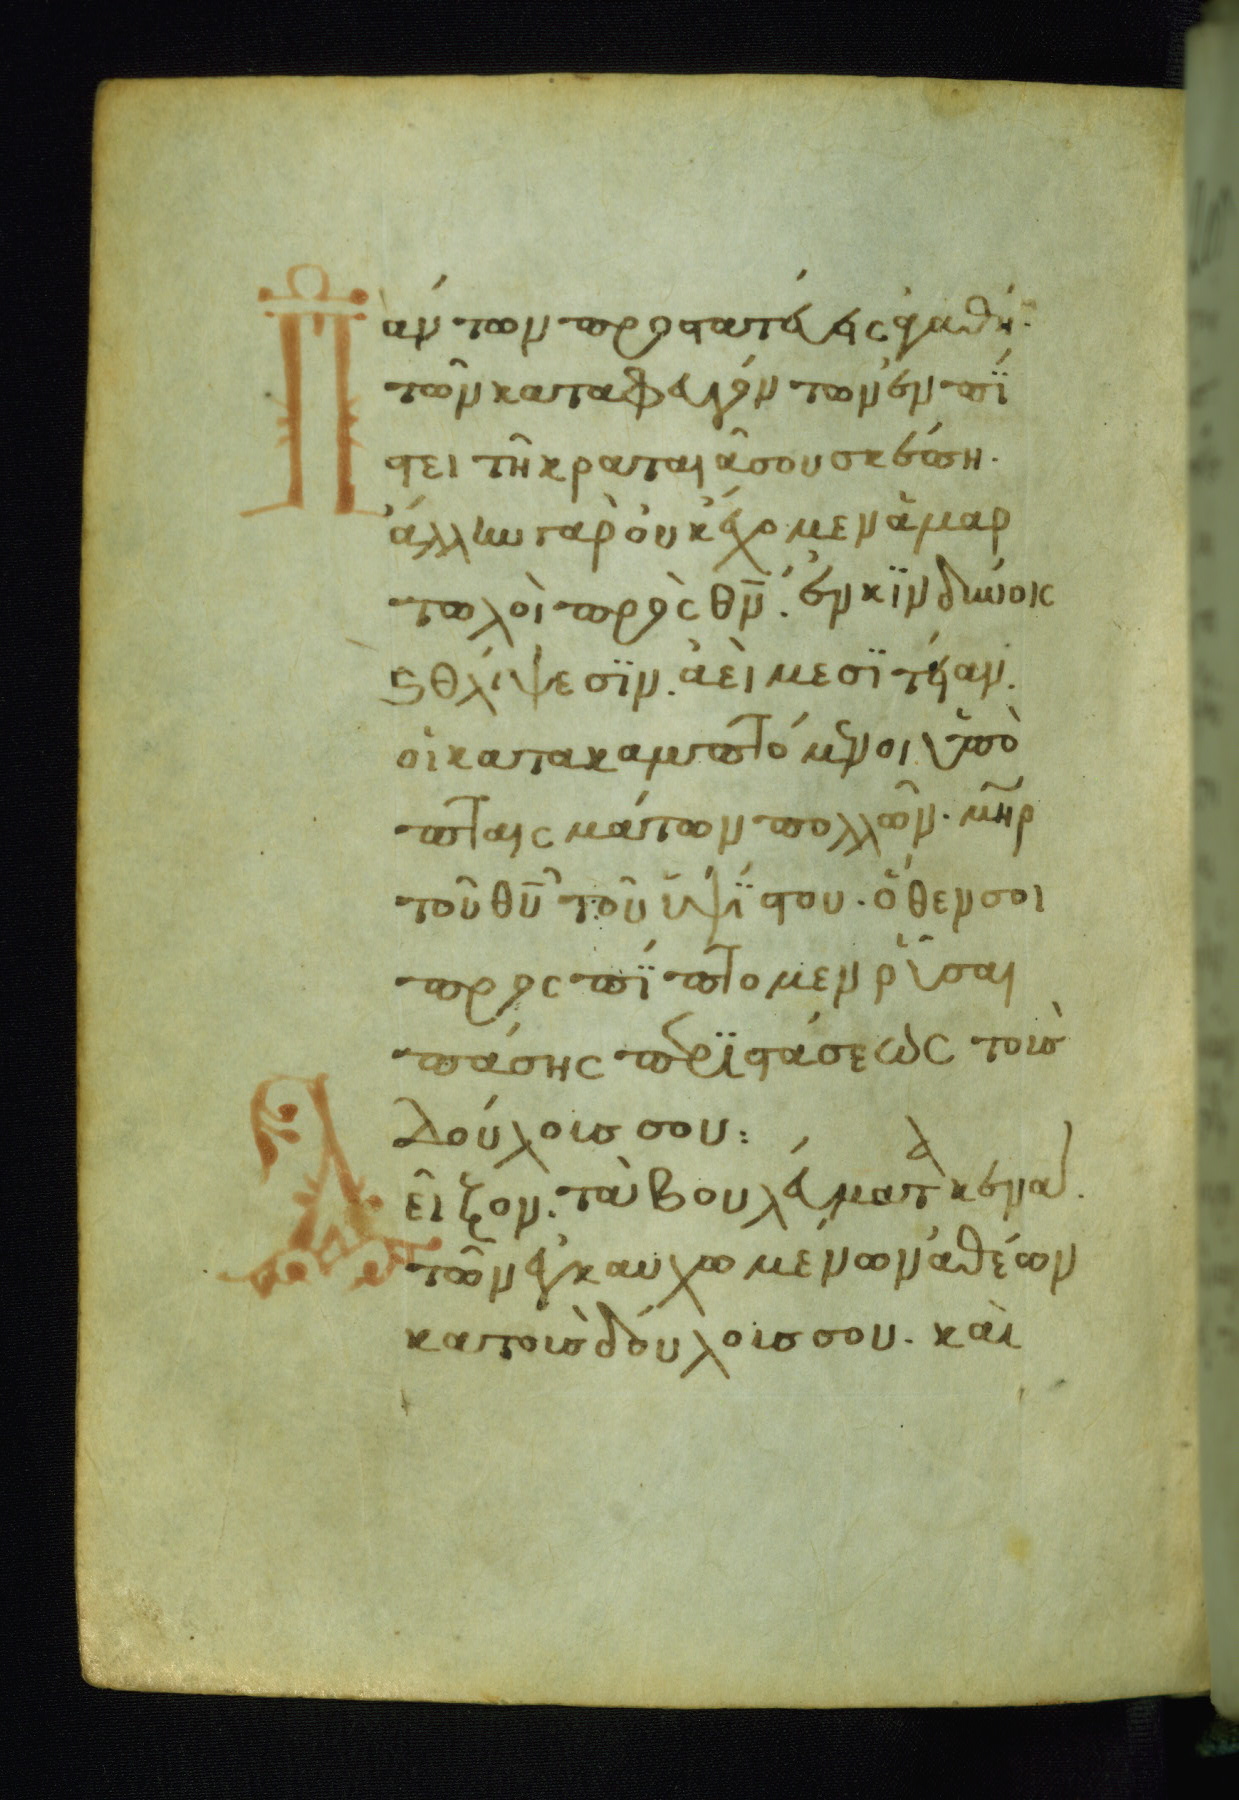 Πάντων προστατεύεις ἀγαθή·
τῶν καταφευγόντων ἐν πί
στει τῆ κραταιᾶ σου σκέπη.
ἄλλην γὰρ οὐκ ἔχομεν ἁμαρ
τωλοὶ πρὸς θν̄. ἐν κινδύνοις
ϛ θλίψεσϊν. ἀεὶ μεσϊτείαν.
οἱ κατακαμπτόμενοι ὑπὸ
πταισμάτων πολλῶν. μῆρ
τοῦ θῦ τοῦ ὑψίστου. ὅθεν σοι
προσπίπτομεν ῥῦσαι
πάσης περϊστάσεως τοὺς
δούλους σου:
Δεῖξον. τὰ βουλεύματα κενὰ.
τῶν ἐγκαυχωμένων ἀθέων
κατὰ τοὺς δούλους σου. καὶ